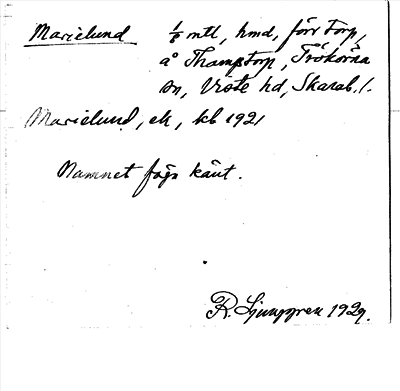 Marielund 1/8 mtl, hmd, förr torp,
å Thamstorp, Trökörna
sn, Viste hd, Skarab. l.
Marielund, ek, kb 1921
Namnet föga känt.
R. Ljunggren 1929.